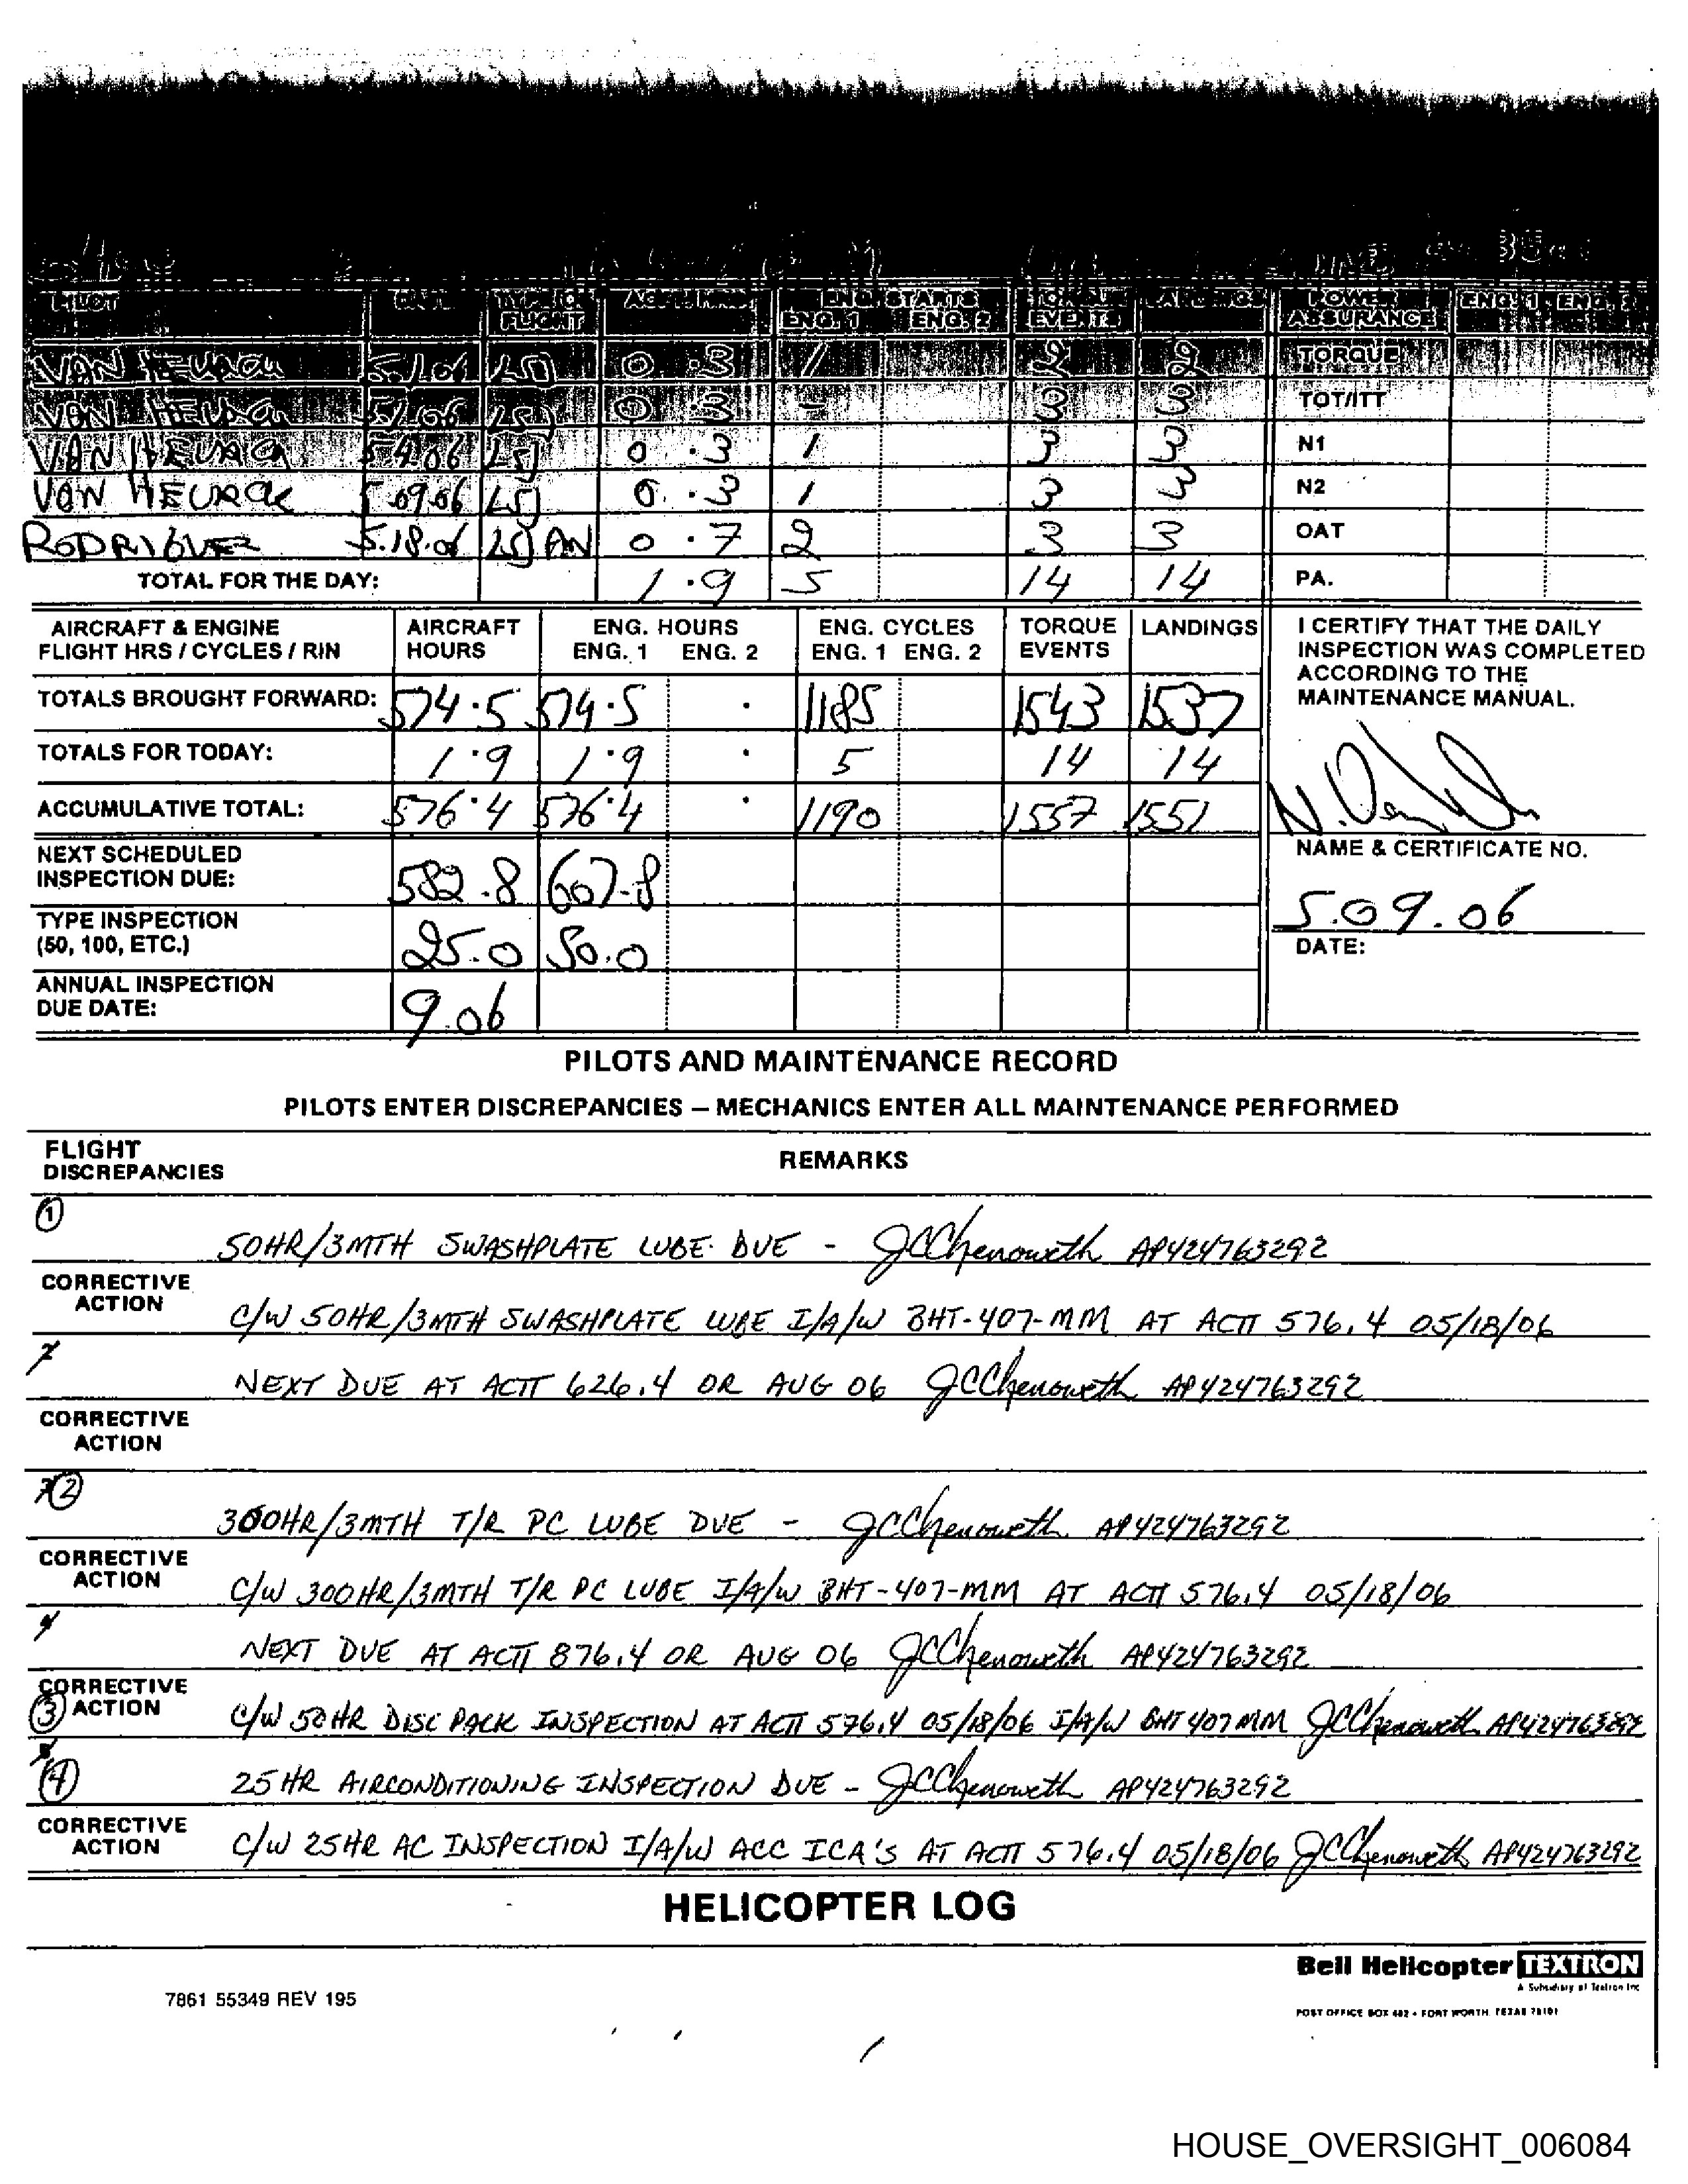 PILOT DATE TYPE OF FLIGHT ENG. STARTS ENG. 1 ENG. 2 TORQUE EVENTS LANDINGS POWER ASSURANCE ENG. 1 ENG. 2
VAN 5.1.06 LSJ 0.3 1 2 2 TORQUE
VAN 0.3 - 3 3 TOT/ITT
VAN 5.4.06 LSJ 0.3 1 3 3 N1
VAN 5.09.06 LSJ 0.3 1 3 3 N2
5.18.06 LSJ AN 0.7 2 3 3 OAT
TOTAL FOR THE DAY: 1.9 5 14 14 PA.
AIRCRAFT & ENGINE FLIGHT HRS / CYCLES / RIN AIRCRAFT HOURS ENG. HOURS ENG. 1 ENG. 2 ENG. CYCLES ENG. 1 ENG. 2 TORQUE EVENTS LANDINGS
I CERTIFY THAT THE DAILY
INSPECTION WAS COMPLETED
ACCORDING TO THE
MAINTENANCE MANUAL.
TOTALS BROUGHT FORWARD: 574.5 574.5 . 1185 1543 1537
TOTALS FOR TODAY: 1.9 1.9 . 5 14 14
ACCUMULATIVE TOTAL: 576.4 576.4 . 1190 1557 1551
NAME & CERTIFICATE NO.
NEXT SCHEDULED
INSPECTION DUE: 582.8 607.8
5.09.06
DATE:
TYPE INSPECTION
(50, 100, ETC.) 25.0 50.0
ANNUAL INSPECTION
DUE DATE: 9.06
PILOTS AND MAINTENANCE RECORD
PILOTS ENTER DISCREPANCIES – MECHANICS ENTER ALL MAINTENANCE PERFORMED
FLIGHT
DISCREPANCIES REMARKS
1 50HR/3MTH SWASHPLATE LUBE DUE - JCChenoweth AP424763292
CORRECTIVE
ACTION C/W 50HR/3MTH SWASHPLATE LUBE I/A/W BHT-407-MM AT ACTT 576.4 05/18/06
NEXT DUE AT ACTT 626.4 OR AUG 06 JCChenoweth AP424763292
CORRECTIVE
ACTION
2 300HR/3MTH T/R PC LUBE DUE - JCChenoweth AP424763292
CORRECTIVE
ACTION C/W 300HR/3MTH T/R PC LUBE I/A/W BHT-407-MM AT ACTT 576.4 05/18/06
NEXT DUE AT ACTT 876.4 OR AUG 06 JCChenoweth AP424763292
CORRECTIVE
3 ACTION C/W 50HR DISC PACK INSPECTION AT ACTT 576.4 05/18/06 I/A/W BHT 407MM JCChenoweth AP424763292
4 25HR AIRCONDITIONING INSPECTION DUE - JCChenoweth AP424763292
CORRECTIVE
ACTION C/W 25HR AC INSPECTION I/A/W ACC ICA'S AT ACTT 576.4 05/18/06 JCChenoweth AP424763292
HELICOPTER LOG
Bell Helicopter TEXTRON
A Subsidiary of Textron Inc
7861 55349 REV 195
POST OFFICE BOX 482 • FORT WORTH, TEXAS 76101
HOUSE_OVERSIGHT_006084